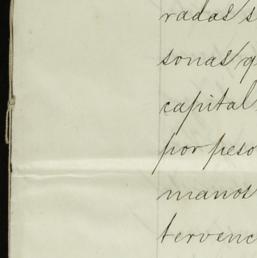 radas s
sonas q
capital
por peso
manos
tervenc